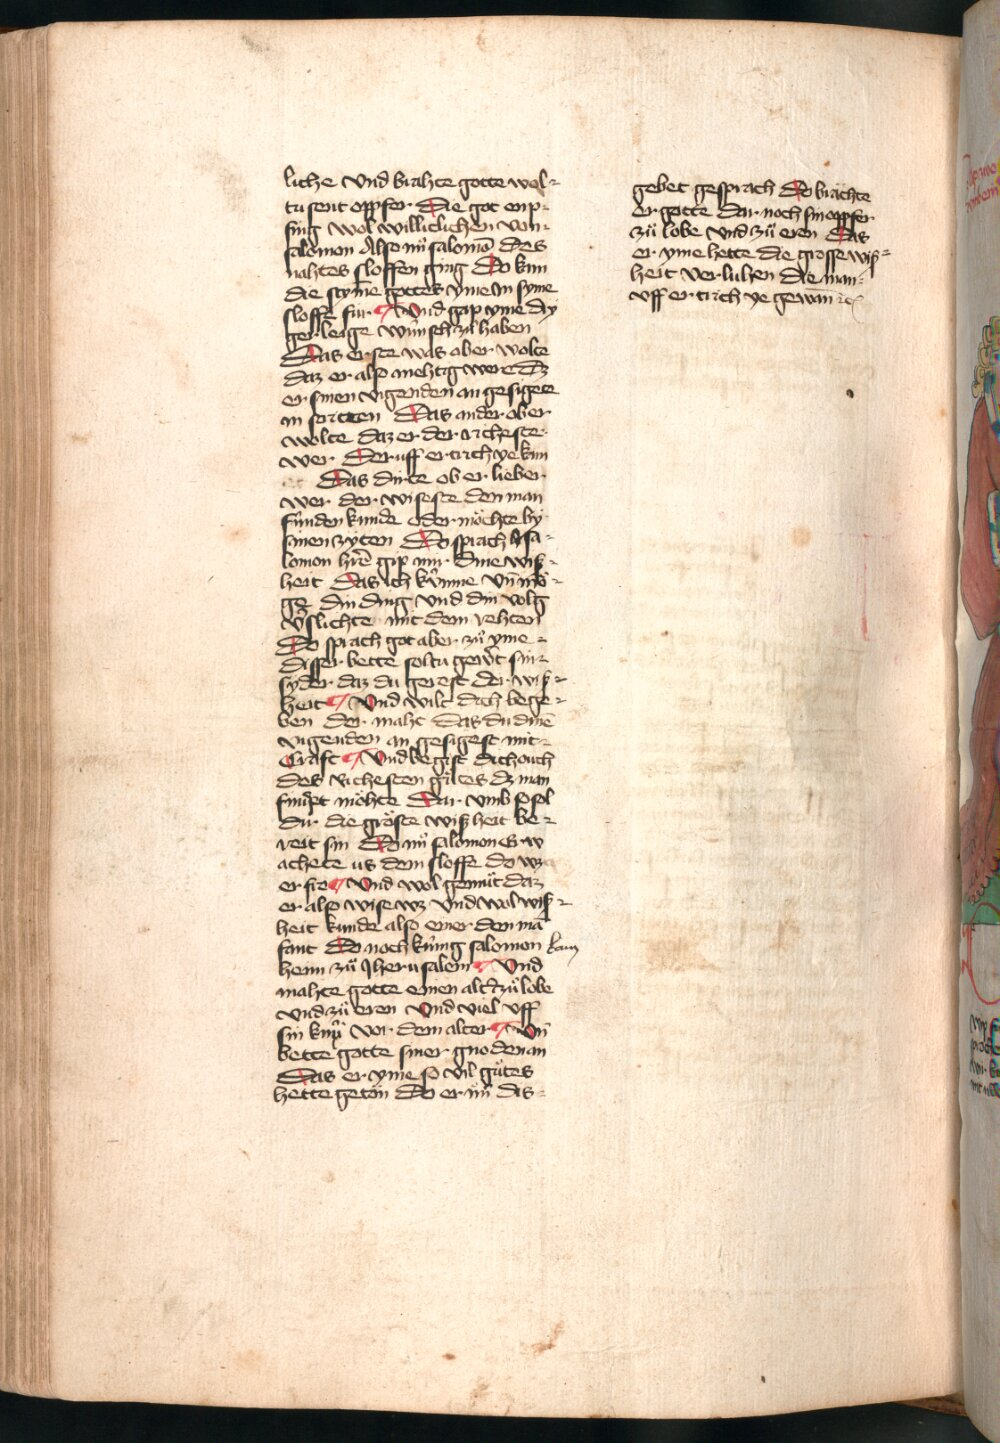 liche Vnd brahte gotte wol-
tusent oppfer Die got enp-
fing wol willeclichen von
salomon Also nu̇ salomō des
nahtes sloffen ging Do kam
die stym̄e gottes yme In syme
sloffe für Vnd gap yme dry
ger leige wünsch zü haben
Das erste was ober wolte
daz er also mehtig were dz
er sinen vigenden an gesigete
in stritten Das ander ober
wolte daz er der richeste
wer Der uff ertrich ye kam
Das dirte ob er lieber
wer der wiseste den man
fünden kunde oder möchte by
sinen zyten Do sprach sa-
lomon hr̄e gip mir dine wiß-
heit Das ich künne vn̄ mö-
ge din ding vnd din volg
v̓slichte mit dem rehten
Do sprach got aber zü yme
disser bette soltu gew̓t sin
syder daz du gerest der wiß-
heit Vnd wilt dich bege-
ben der maht das du dinē
vigenden an gesigest mit
Craft Vnd begist dich ouch
des richesten gütes dz man
möhte Dar vmb so sol
dir die gröste wißheit be-
reit sin Do nü salomon er w
achete us dem sloffe do wz
er fro Vnd wol gemüt daz
er also wise wz Vnd wol wiß-
heit kunde also einer den mā
fant Do noch künig salomon kam
heim zü Jherusalem Vnd
mahte gotte einen alter zü lobe
vnd zü eren Vnd viel vff
sin knü vor dem alter Vn̄
bette gotte siner gnoden an
Das er yme so vil gütes
hette geton Do er nü dis
gebet gesprach Do brachte
er gotte dar noch sin oppfer
zü lobe Vnd zü eren Das
er yme hette die grosse wiß-
heit verluhen die man
vff ertrich ye gewan